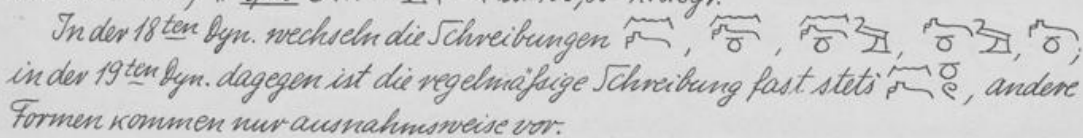 In der 18ten Dyn. wechseln die Schreibungen , , , , ,
in der 19ten Dyn. dagegen ist die regelmäßige Schreibung fast stets , andere
Formen kommen nur ausnahmsweise vor.